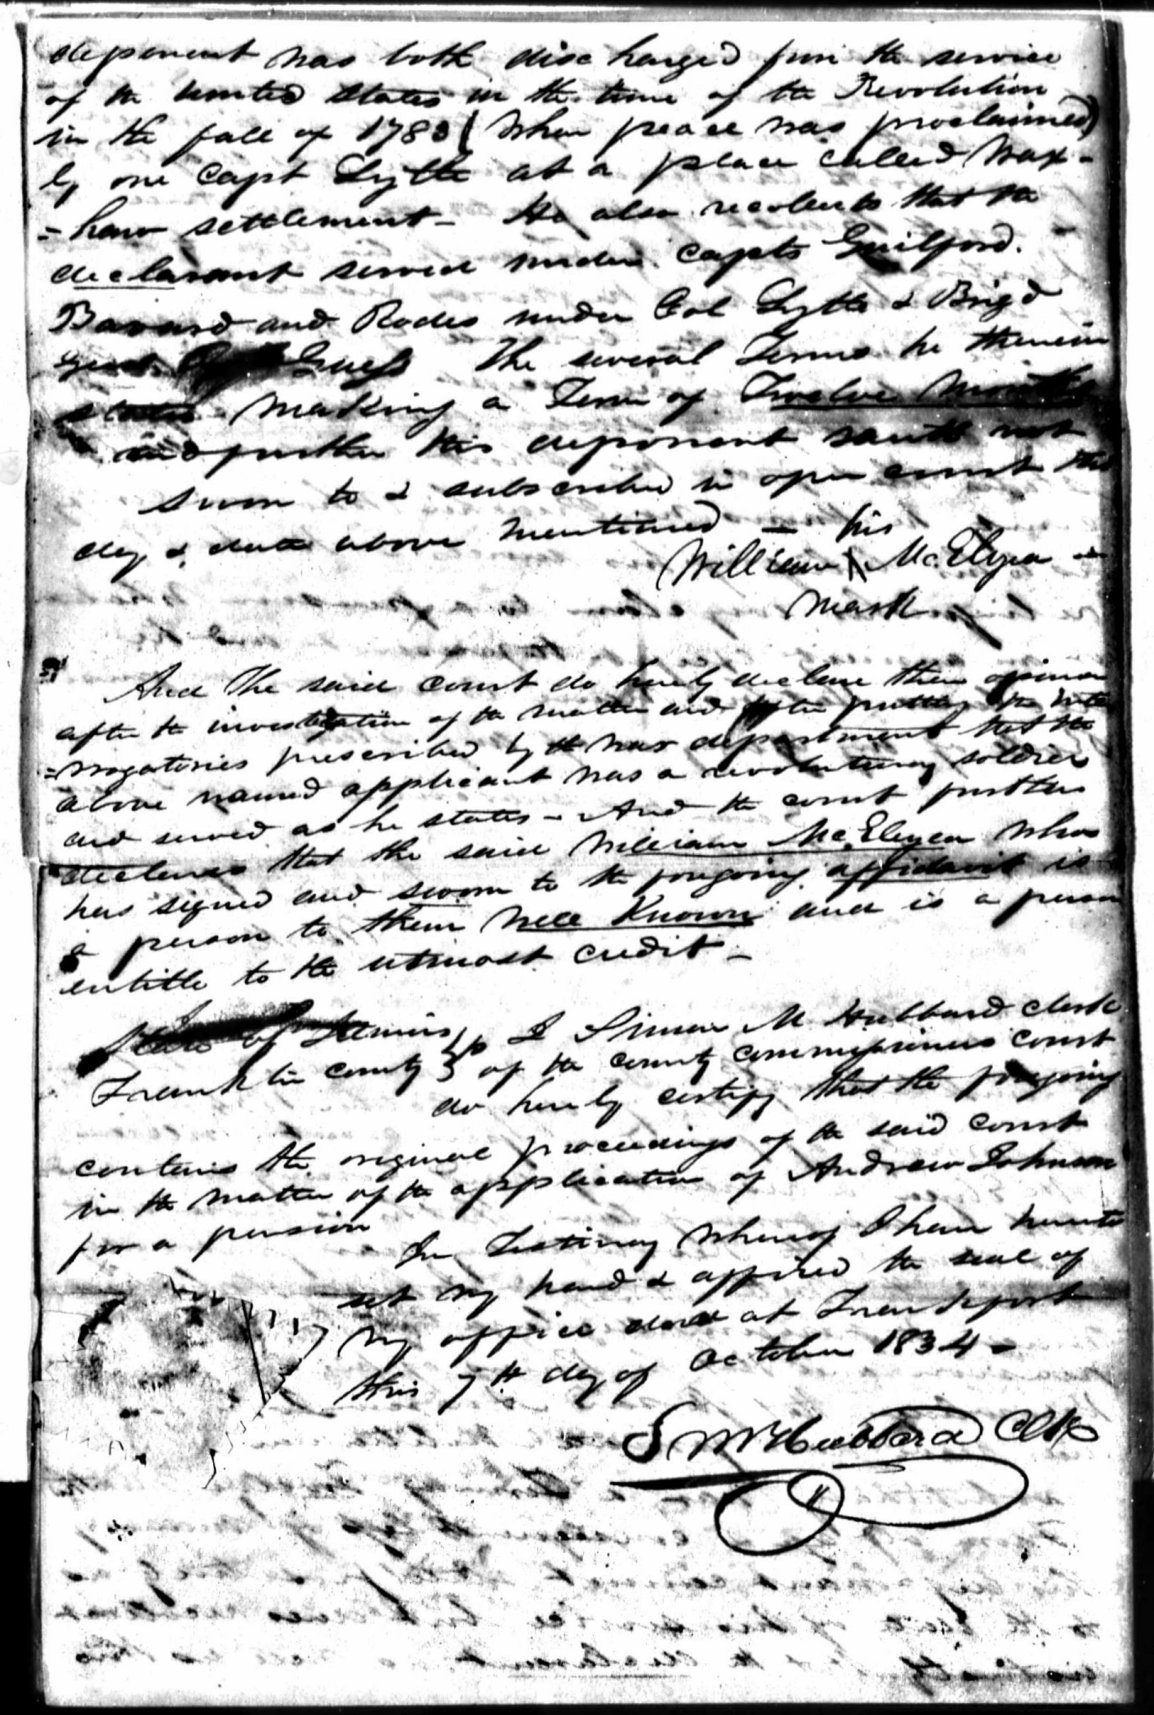 deponent was both discharged from the service
of the united states in the time of the Revolution
in the fall of 1783 (When peace was proclaimed)
by one Capt Lytle at a place called Wax-
=haw settlement - He also recollects that the
declarant served under Capts Guilford.
and Rodes under Col Lytle & Brigd
The several Terms he therein
states making a Term of Twelve Months
and further this deponent saith not
Sworn to & subscribed in open court the
day & date above mentioned - his
William McElyea
mark
And The said court do hereby declare their opinion
after the investigation of the matter and after putting the inter
=rogatories prescribed by the war department that the
above named applicant was a revolutionary soldier
and served as he states - And the court further
declares that the said William McElyea who
has signed and sworn to the forgoing affidavit is
a person to them well Known and is a person
entitle to the utmost credit -
State of Illinois } I Simon M Hubbard clerk
Franklin county } of the county commissioners court
do hereby certify that the forgoing
contains the original proceedings of the said court
in the matter of the application of Andrew Johnson
for a pension
In Testimony whereof I have hereunto
set my hand & affixed the seal of
my office done at Frankfort
this 7th day of October 1834 -
S M Hubbard Clk